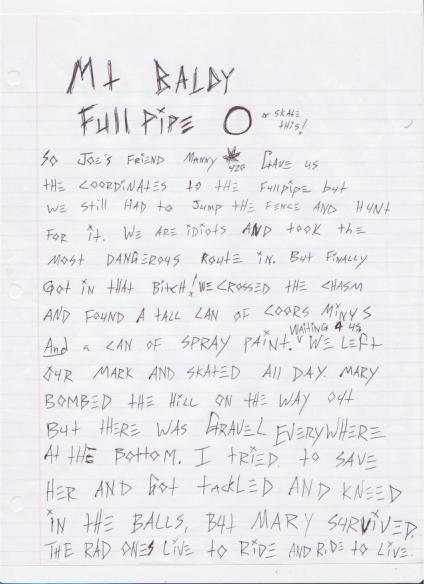 Mt BALDY
Full PiPE O or SKATE this!
So JOE'S FRiEND MANNY 420 GAVE US
tHE COORDiNATES to tHE Fullpipe but
WE Still HAD to Jump tHE FENCE AND HUNt
FOR it. WE ARE iDiOtS AND tOOK thE
MOSt DANGEROUS ROUtE iN. But FiNAlly
Got iN tHAt BitcH! WE CROSSED tHE CHASM
AND FOUND A tAll CAN OF COORS
And A CAN OF SPRAY PAiNt. WAitiNG 4 US WE LEFt
OUR MARK AND SKAtED All DAY. MARY
BOMBED tHE Hill ON tHE WAY OUt
But tHERE WAS GRAVEL EVERYWHERE
At tHE BOttOM. I tRiED tO SAVE
HER AND Got tACKlED AND KNEED
iN tHE BALLS, But MARY SURViVED.
THE RAD ONES LiVE to RiDE AND RiDE to LiVE.